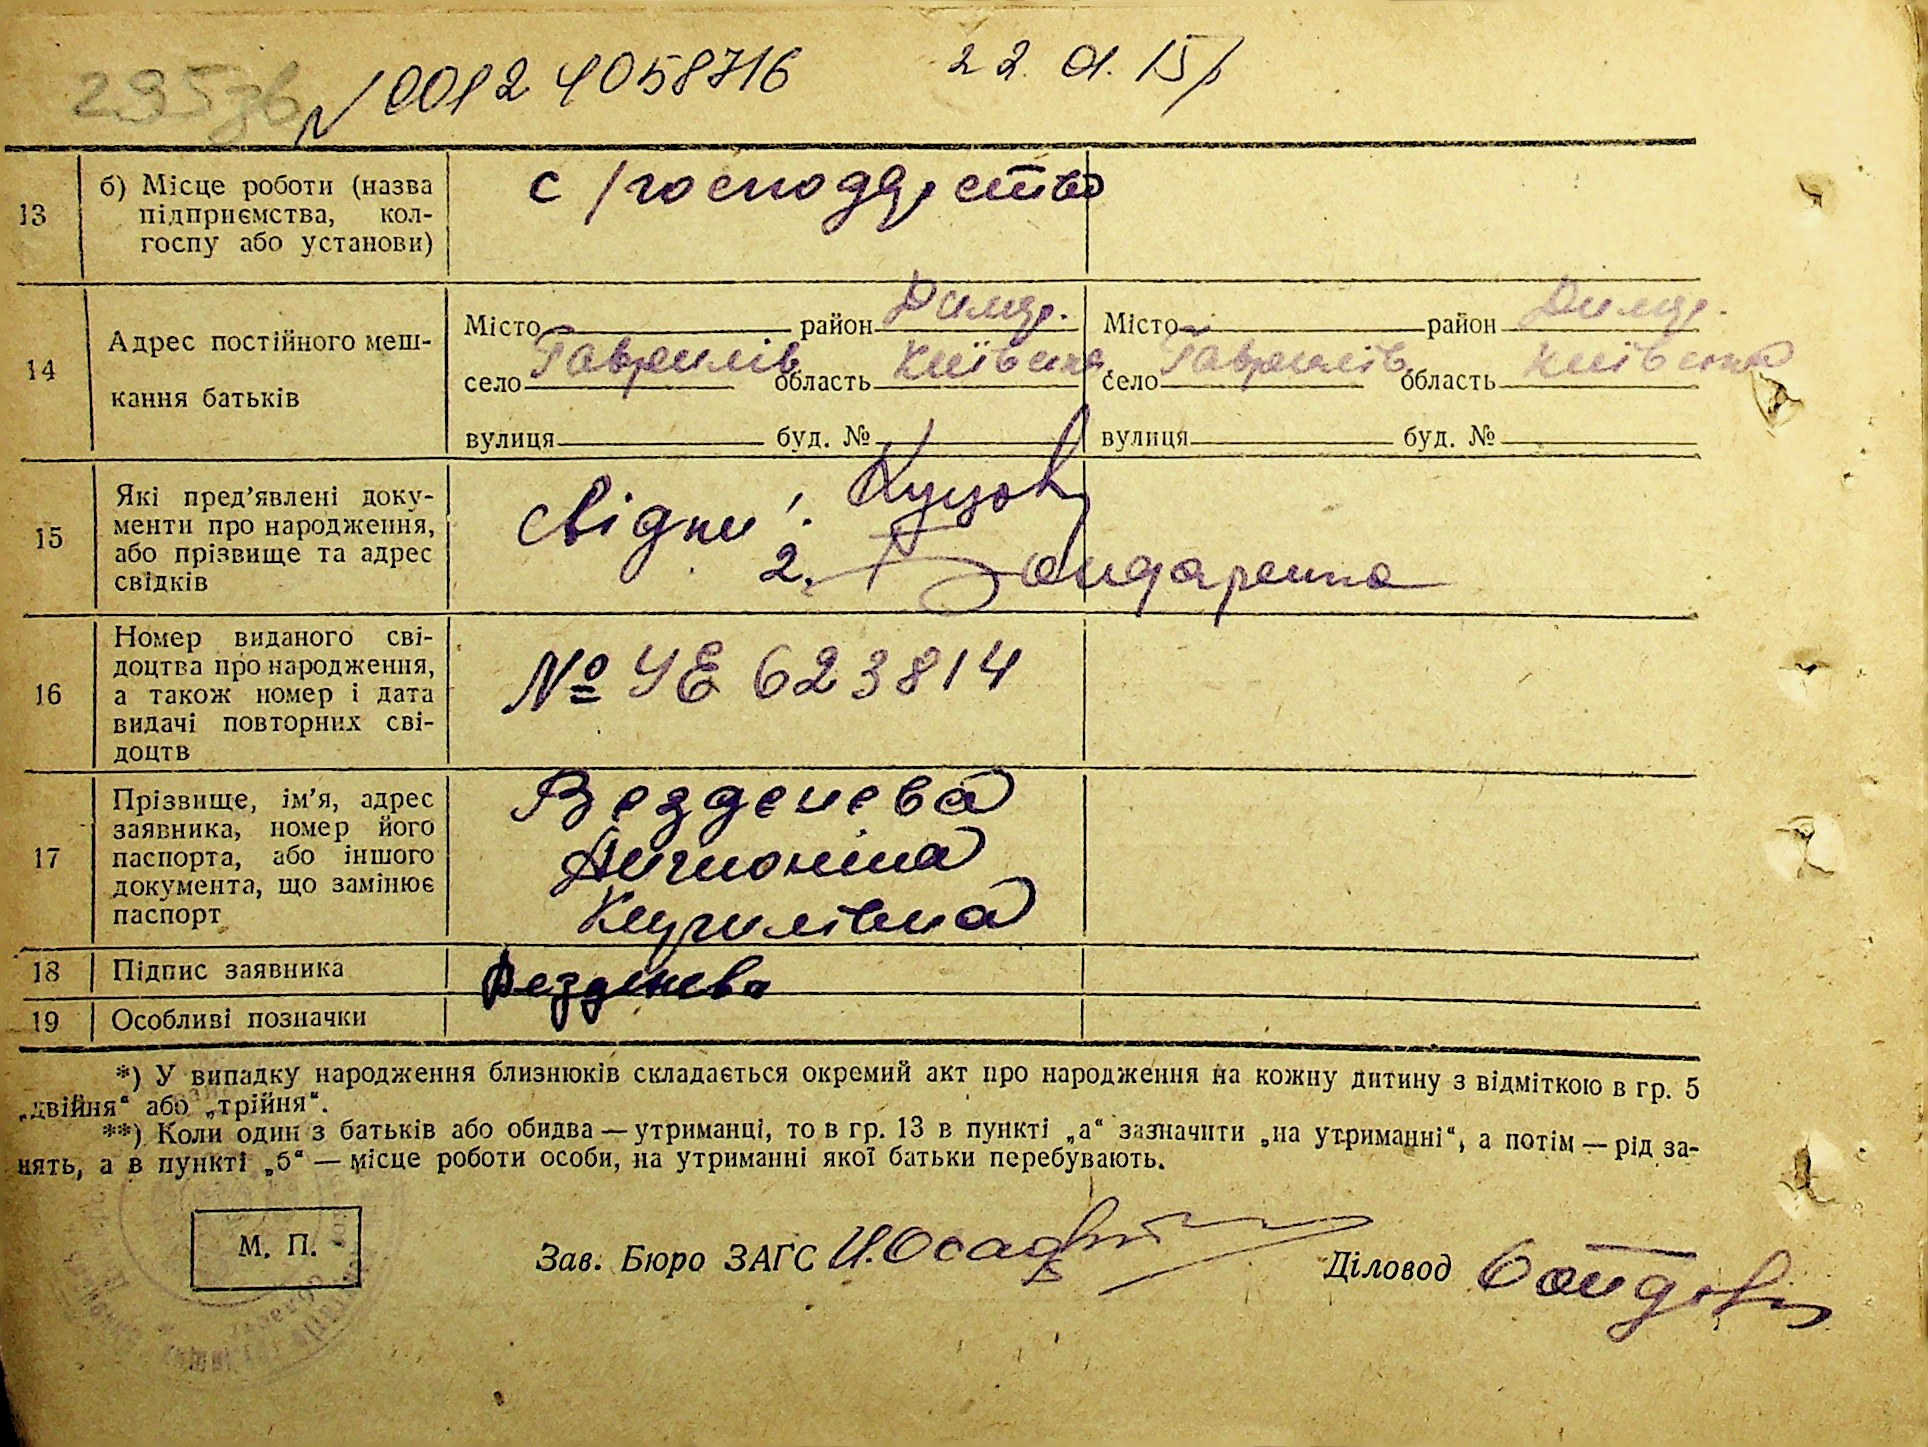 295зв
N 00124058716 22.01.15р
13 б) Місце роботи (назва підприємства, кол-
госпу або установи)
с/господарство
14 Адрес постійного меш-
кання батьків
Місто район Димер. Місто район Димер.
село Гаврилів область Київська село Гаврилів область Київська
вулиця буд. № вулиця буд. №
15 Які пред’явлені доку-
менти про народження,
або прізвище та адрес
свідків
свідки:
2. Бондаренко
16 Номер виданого сві-
доцтва про народження,
а також номер і дата
видачі повторних сві-
доцтв
№ УЕ 623814
17 Прізвище, ім’я, адрес
заявника, номер його
паспорта, або іншого
документа, що замінює
паспорт
Везденева
Антоніна
Кирилівна
18 Підпис заявника Везденева
19 Особливі позначки
*) У випадку народження близнюків складається окремий акт про народження на кожну дитину з відміткою в гр. 5
„двійня“ або „трійня“.
**) Коли один з батьків або обидва — утриманці, то в гр. 13 в пункті „а“ зазначити „на утриманні“, а потім — рід за-
нять, а в пункті „б“ — місце роботи особи, на утриманні якої батьки перебувають.
М. П.
Зав. Бюро ЗАГС Діловод